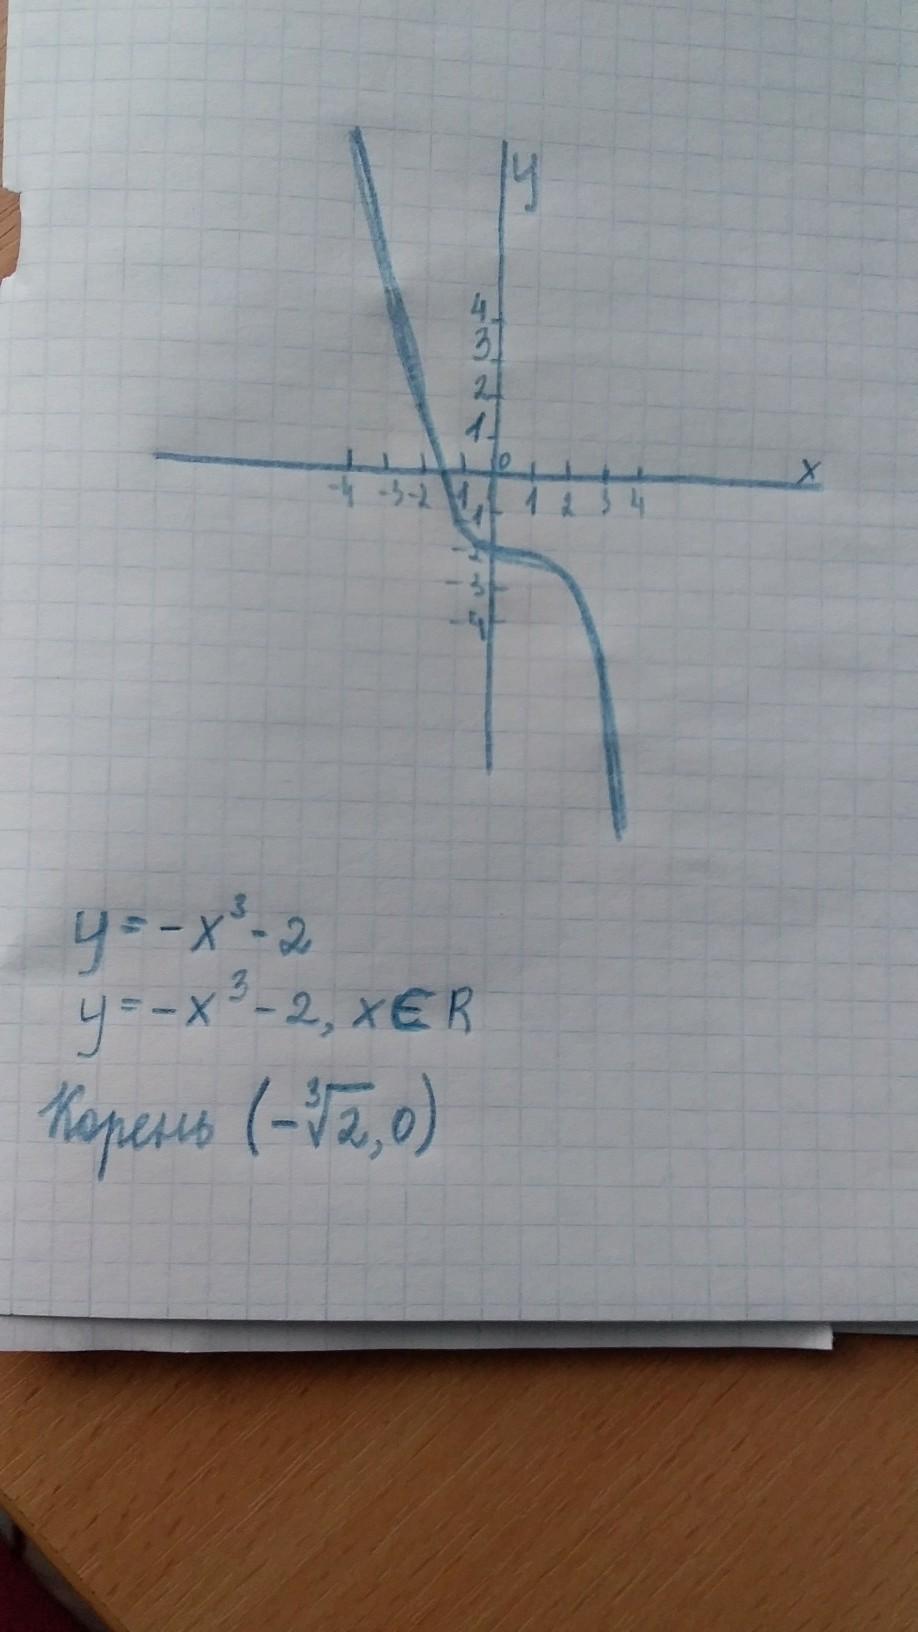 y
4
3
2
1
0 x
-4 -3 -2 -1 1 2 3 4
-1
-2
-3
-4
y=-x³-2
y=-x³-2, x∈R
Корень (-∛2,0)